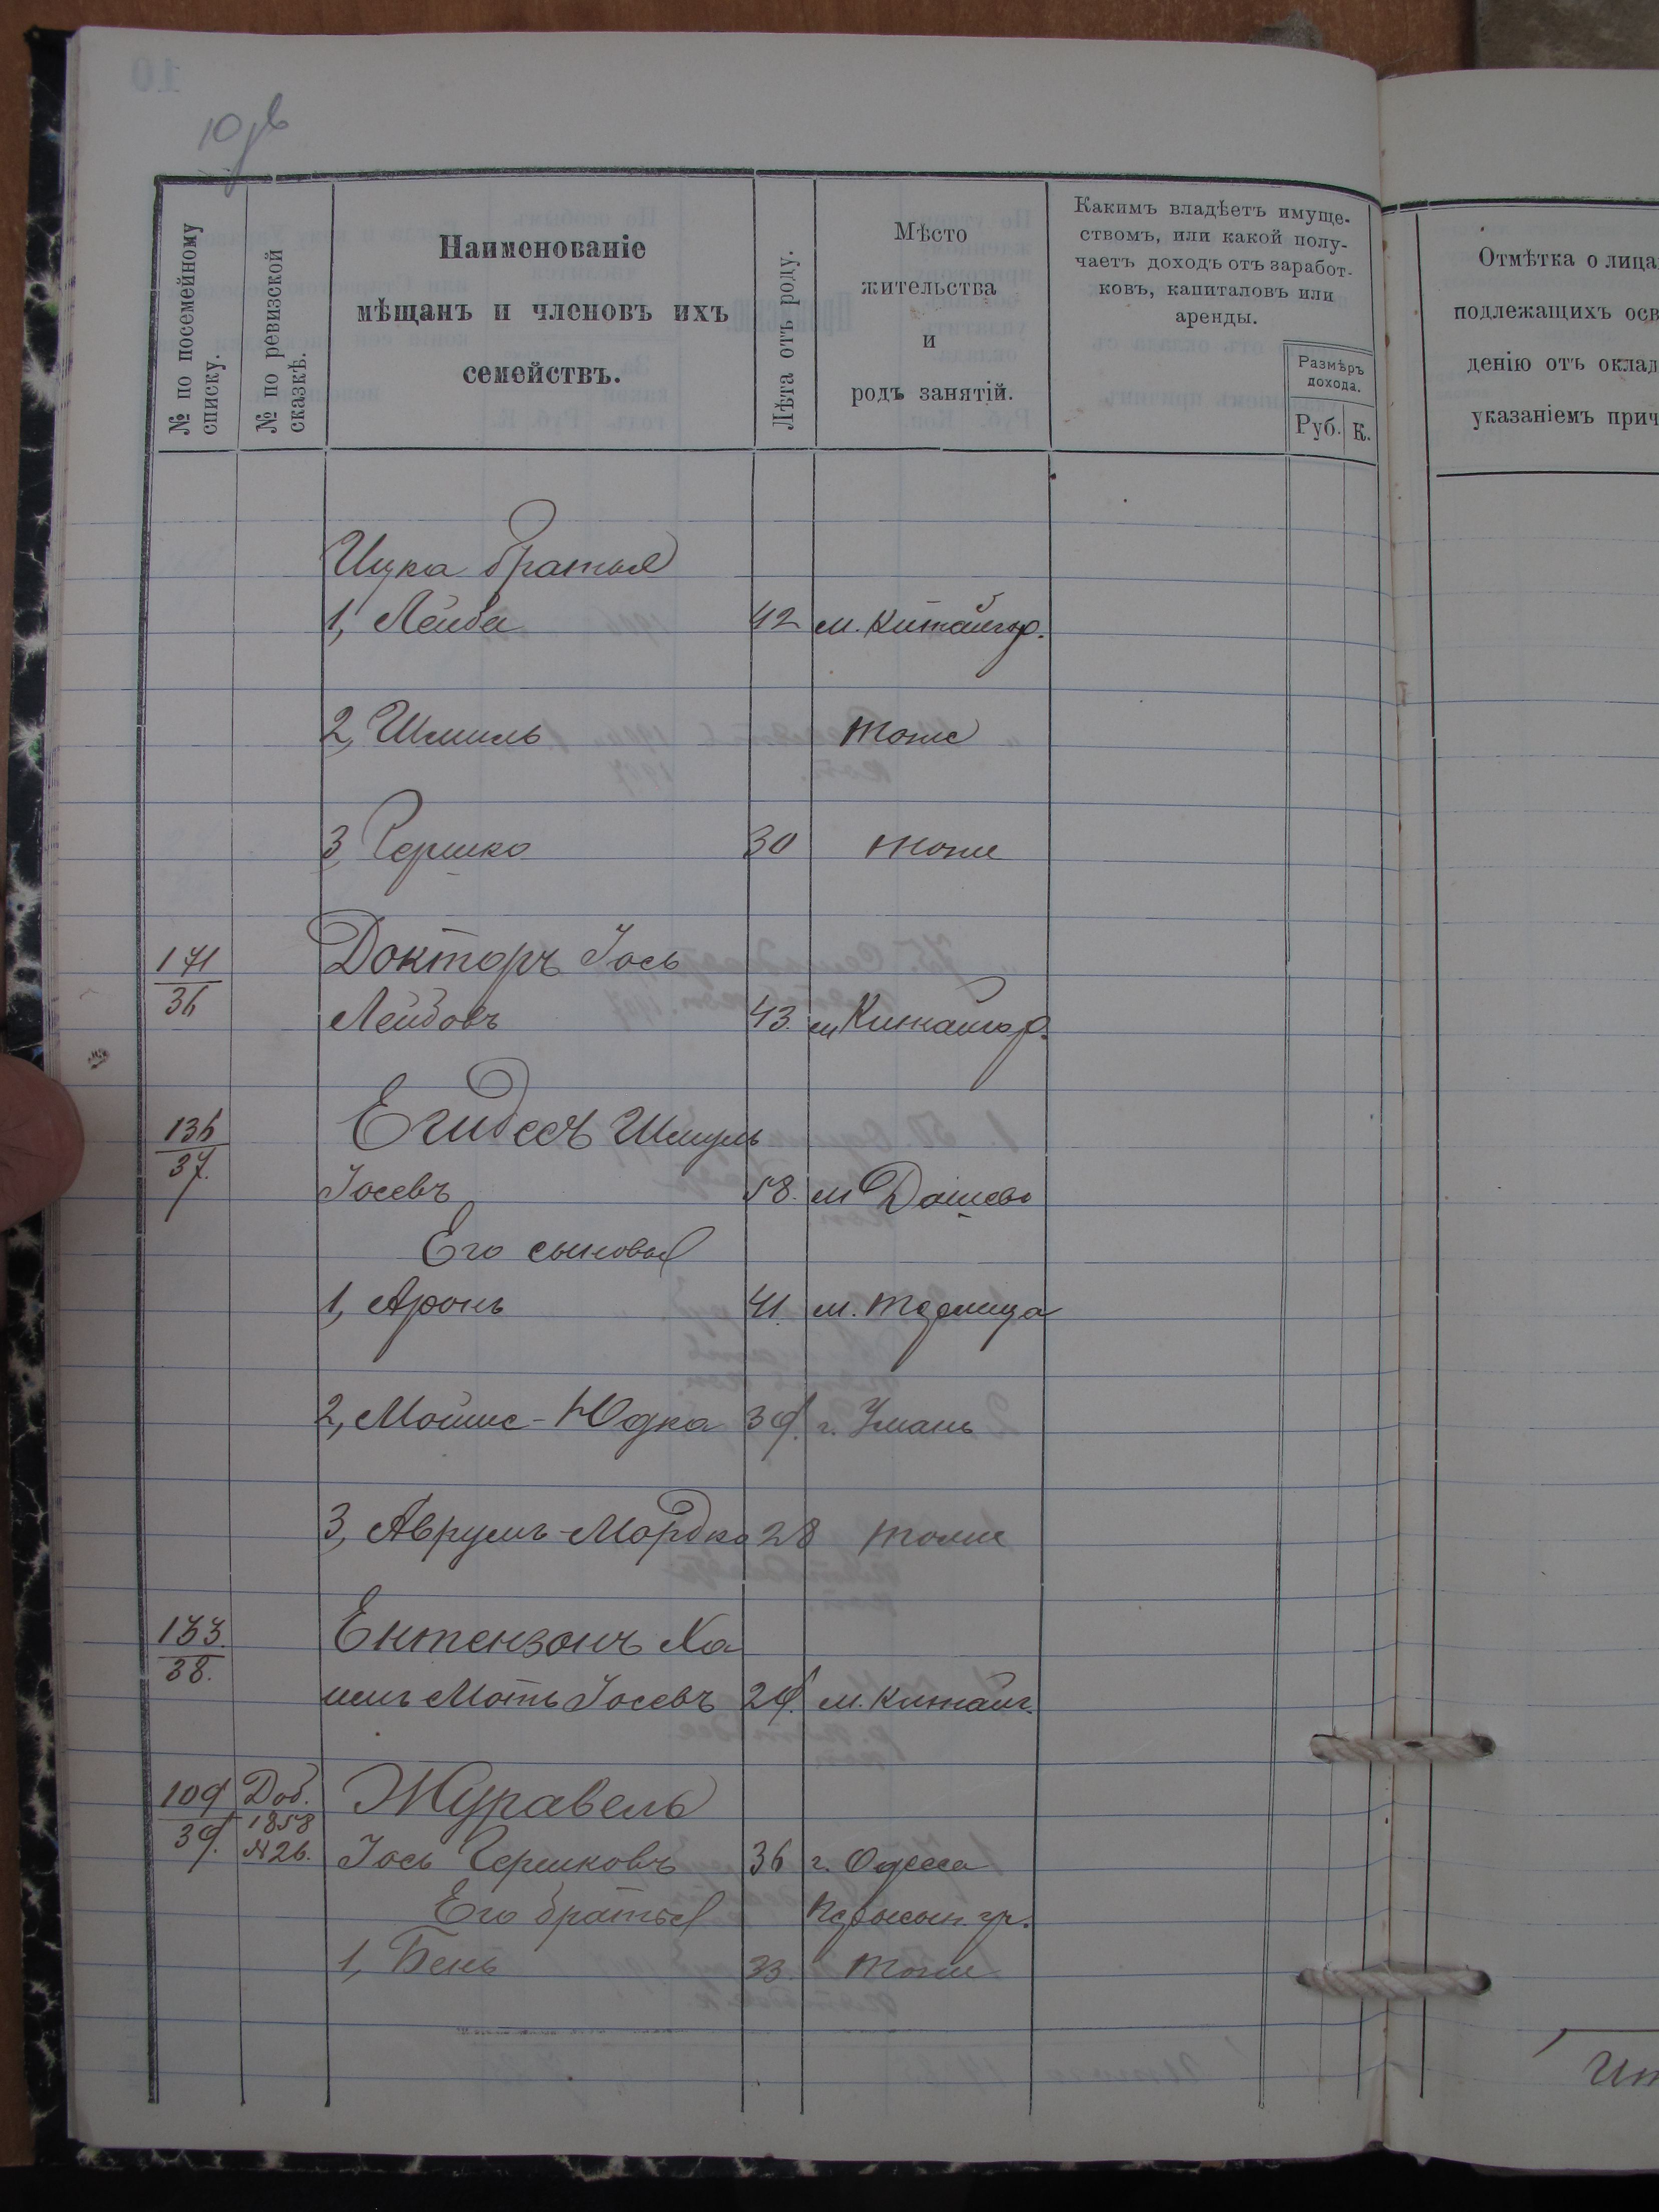 10 об
№ по посемейному
списку.
№ по ревизской
сказкѣ.
Наименованіе
мѣщанъ и членовъ ихъ
семействъ.
Лѣта отъ роду.
Мѣсто
жительства
и
родъ занятій.
Какимъ владѣетъ имуще-
ствомъ, или какой полу-
чаетъ доходъ отъ заработ-
ковъ, капиталовъ или
аренды.
Размѣръ
дохода.
Руб. К.
Отмѣтка о лица
подлежащихъ осв
денію отъ оклад
указаніемъ прич
Ицка братья
1, Лейба 42 м. Китайгор.
2, Шмиль тоже
3, Гершко 30 тоже
171 Докторъ Іось
36 Лейбовъ 43. м. Китайгор.
136 Егидесъ Шмуль
37. Іосевъ 58. м Дашево
Его сыновья
1, Аронъ 41. м.
2, Мойше-Юдка 39. г. Умань
3, Аврумъ-Мордко 28 тоже
133. Ентензонъ Ха
38. имъ Моть Іосевъ 29. м. Китайг.
109 Доб. Журавель
39. 1858
№ 26. Іось Гершковъ 36 г. Одесса
Его братья Херсон. гр.
1, Бень 33. тоже
Ит